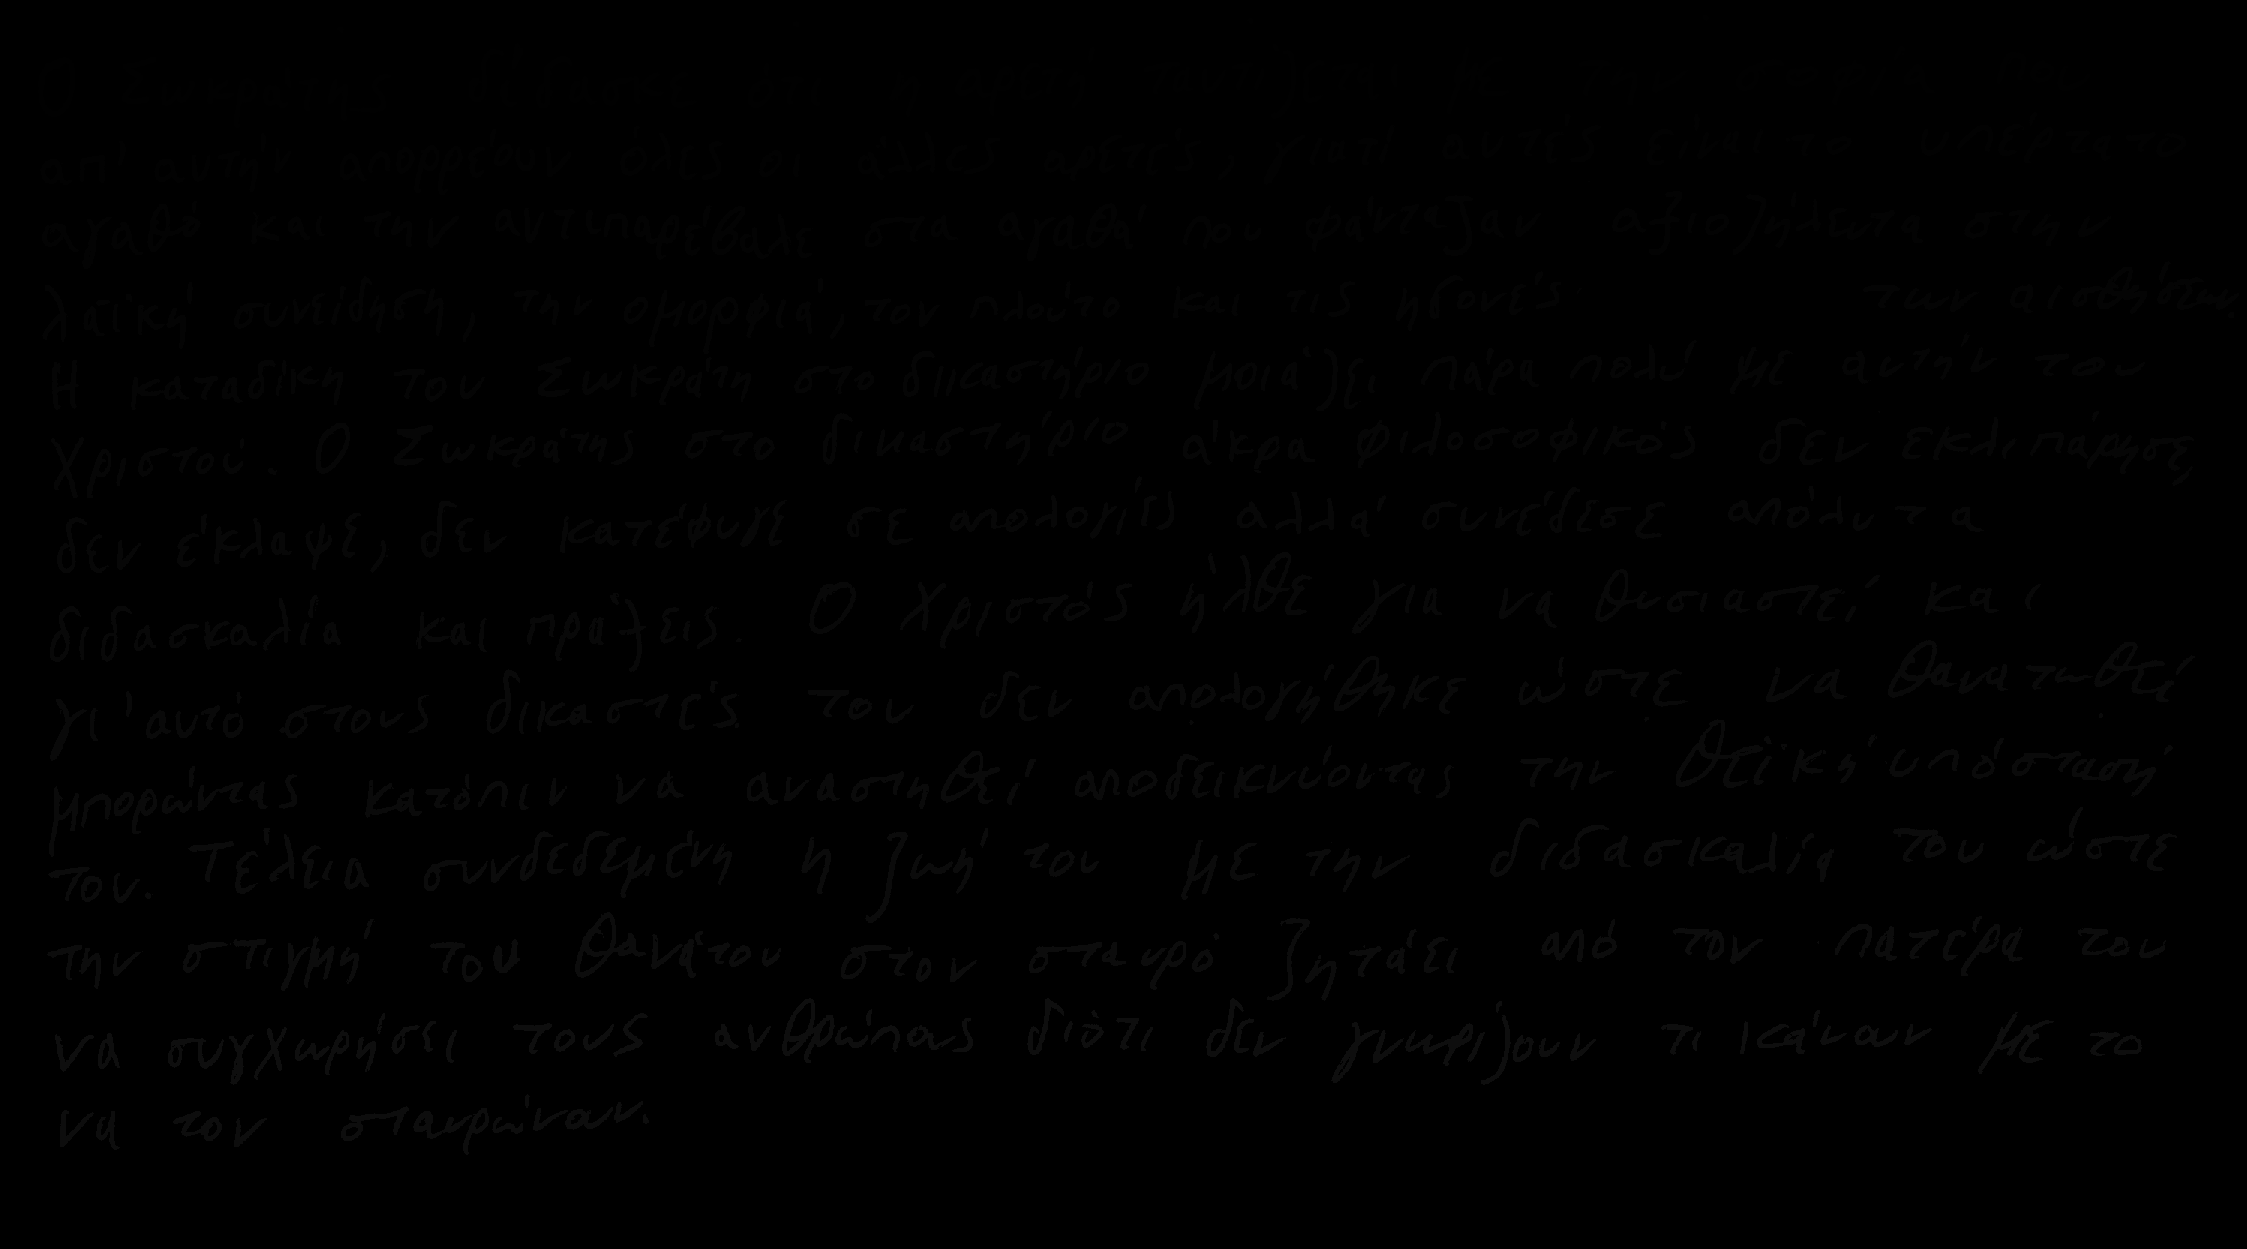 Ο Σωκράτης δίδασκε ότι η αρετή ταυτίζεται με την σοφία
απ' αυτήν απορρέουν όλες οι άλλες αρετές, γιατί αυτές είναι το υπέρτατο
αγαθό και την αντιπαρέβαλε στα αγαθά που φάνταζαν αξιοζήλευτα στην
λαϊκή συνείδηση, την ομορφιά, τον πλούτο και τις ηδονές των αισθήσεων.
Η καταδίκη του Σωκράτη στο δικαστήριο μοιάζει πάρα πολύ με αυτήν του
Χριστού. Ο Σωκράτης στο δικαστήριο άκρα φιλοσοφικός δεν εκλιπάρησε,
δεν έκλαψε, δεν κατέφυγε σε απολογίες αλλά συνέδεσε απόλυτα
διδασκαλία και πράξεις. Ο Χριστός ήλθε για να θυσιαστεί και
γι' αυτό στους δικαστές του δεν απολογήθηκε ώστε να θανατωθεί
μπορώντας κατόπιν να αναστηθεί αποδεικνύοντας την θεϊκή υπόστασή
του. Τέλεια συνδεδεμένη η ζωή του με την διδασκαλία του ώστε
την στιγμή του θανάτου στον σταυρό ζητάει από τον πατέρα του
να συγχωρήσει τους ανθρώπους διότι δεν γνωρίζουν τι κάνουν με το
να τον σταυρώνουν.